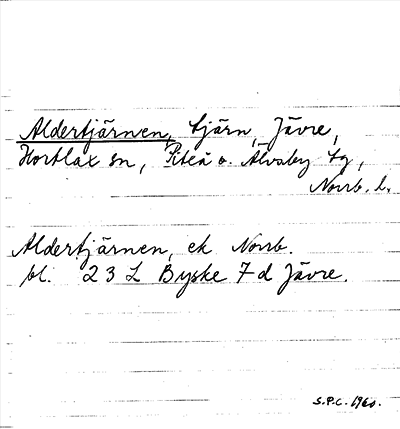 Aldertjärnen, tjärn, Jävre,
Hortlax sn, Piteå o. Älvsby tg,
Norrb. l.
Aldertjärnen, ek Norrb.
bl. 23 L Byske 7 d Jävre.
S.P.C. 1960.